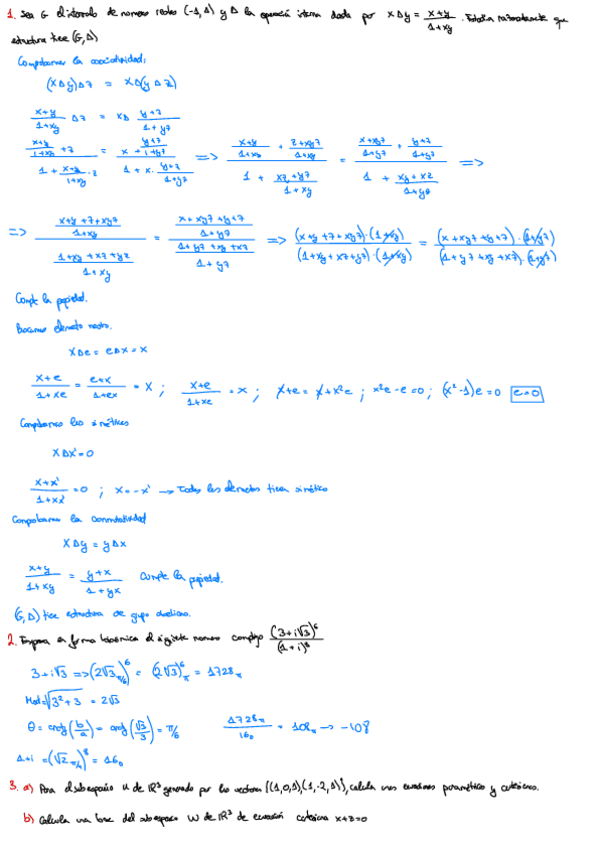 1. Sea G el intervalo de números reales (-1,1) y Δ la operación interna dada por xΔy = (x+y)/(1+xy). Estudia razonadamente que
estructura tiene (G,Δ)
Comprobamos la asociatividad:
(xΔy)Δz = xΔ(yΔz)
(x+y)/(1+xy) Δz = xΔ (y+z)/(1+yz)
((x+y)/(1+xy) + z)/(1 + (x+y)/(1+xy) · z) = (x + (y+z)/(1+yz))/(1 + x · (y+z)/(1+yz)) => ((x+y)/(1+xy) + (z+xyz)/(1+xy))/(1 + (xz+yz)/(1+xy)) = ((x+xyz)/(1+yz) + (y+z)/(1+yz))/(1 + (xy+xz)/(1+yz)) =>
=> ((x+y+z+xyz)/(1+xy))/((1+xy+xz+yz)/(1+xy)) = ((x+xyz+y+z)/(1+yz))/((1+yz+xy+xz)/(1+yz)) => ((x+y+z+xyz)·(1+xy))/((1+xy+xz+yz)·(1+xy)) = ((x+xyz+y+z)·(1+yz))/((1+yz+xy+xz)·(1+yz))
Cumple la propiedad.
Buscamos elemento neutro.
xΔe = eΔx = x
(x+e)/(1+xe) = (e+x)/(1+ex) = x ; (x+e)/(1+xe) = x ; x+e = x+x²e ; x²e-e=0 ; (x²-1)e=0 e=0
Comprobamos los simétricos
xΔx'=0
(x+x')/(1+xx') = 0 ; x=-x' → Todos los elementos tienen simétrico
Comprobamos la conmutatividad
xΔy = yΔx
(x+y)/(1+xy) = (y+x)/(1+yx) Cumple la propiedad.
(G,Δ) tiene estructura de grupo abeliano.
2. Expresa en forma binómica el siguiente numero complejo (3+i√3)⁶/(1+i)⁸
3+i√3 => (2√3 π/6)⁶ = (2√3)⁶π = 1728π
Mod=√(3²+3) = 2√3
θ = arctg(b/a) = arctg(√3/3) = π/6 1728π/16₀ = 108π → -108
1+i = (√2 π/4)⁸ = 16₀
3. a) Para el subespacio U de ℝ³ generado por los vectores {(1,0,1),(1,-2,1)}, calcula unas ecuaciones paramétricas y cartesianas.
b) Calcula una base del subespacio W de ℝ³ de ecuación cartesiana x+z=0